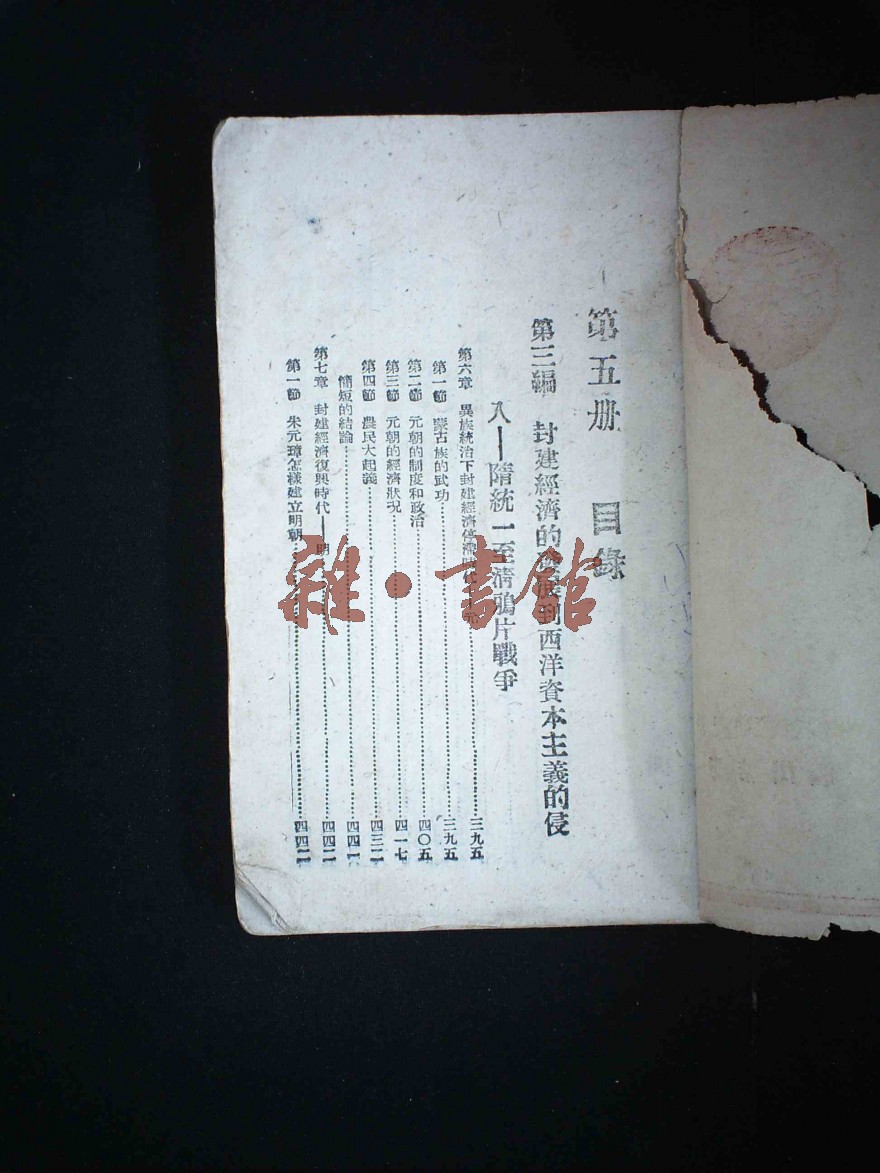 第五册 目錄
第三編 封建經濟的 到西洋資本主義的侵
入——隋統一至清鴉片戰爭
第六章 異族統治下封建經濟停滯 元 三九五
第一節 蒙古族的武功 三九五
第二節 元朝的制度和政治 四〇五
第三節 元朝的經濟狀況 四一七
第四節 農民大起義 四三二
簡短的結論 四四一
第七章 封建經濟復興時代——明 四四二
第一節 朱元璋怎樣建立明朝 四四二
雜·書館